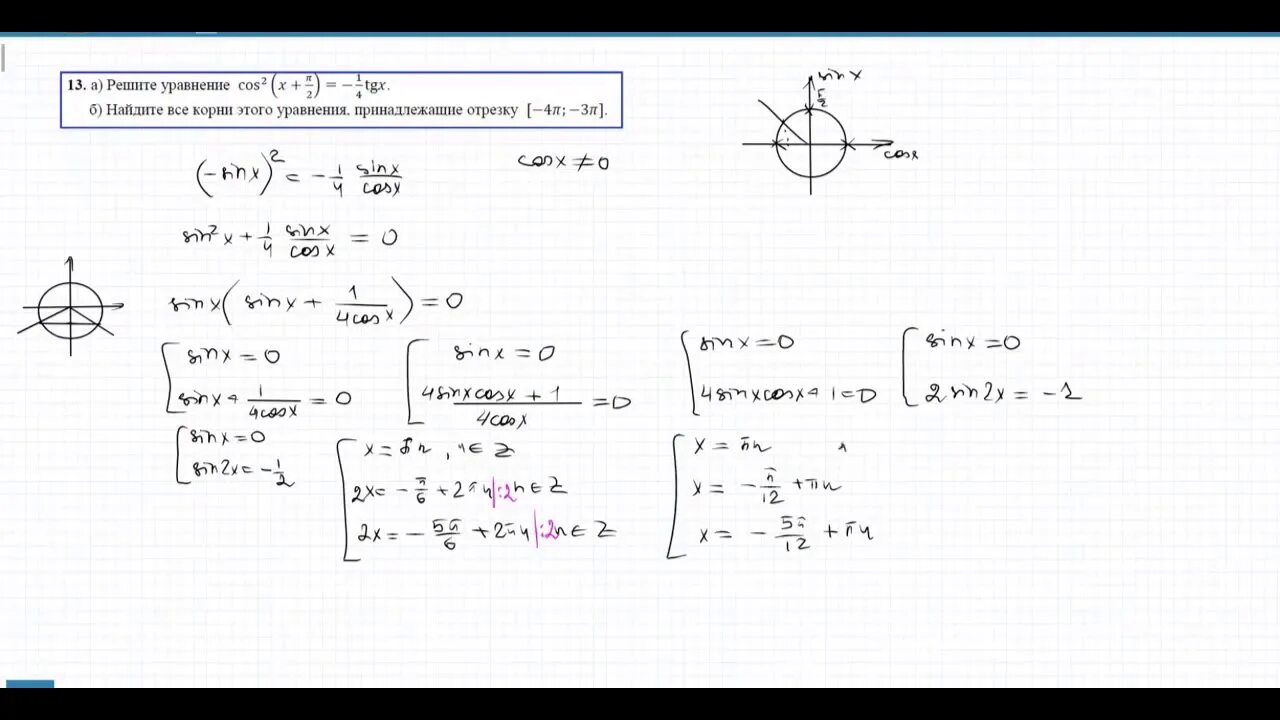 13. а) Решите уравнение cos² (x + π/2) = −1/4 tgx.
б) Найдите все корни этого уравнения, принадлежащие отрезку [−4π; −3π].
sinx
π/2
cosx
(−sinx)² = −1/4 sinx/cosx
cosx ≠ 0
sin²x + 1/4 sinx/cosx = 0
sinx(sinx + 1/4cosx) = 0
[ sinx = 0
sinx + 1/4cosx = 0
[ sinx = 0
(4sinxcosx + 1)/4cosx = 0
[ sinx = 0
4sinxcosx + 1 = 0
[ sinx = 0
2sin2x = −1
[ sinx = 0
sin2x = −1/2
[ x = πn, n ∈ Z
2x = −π/6 + 2πn |:2 n ∈ Z
2x = −5π/6 + 2πn |:2 n ∈ Z
[ x = πn
x = −π/12 + πn
x = −5π/12 + πn